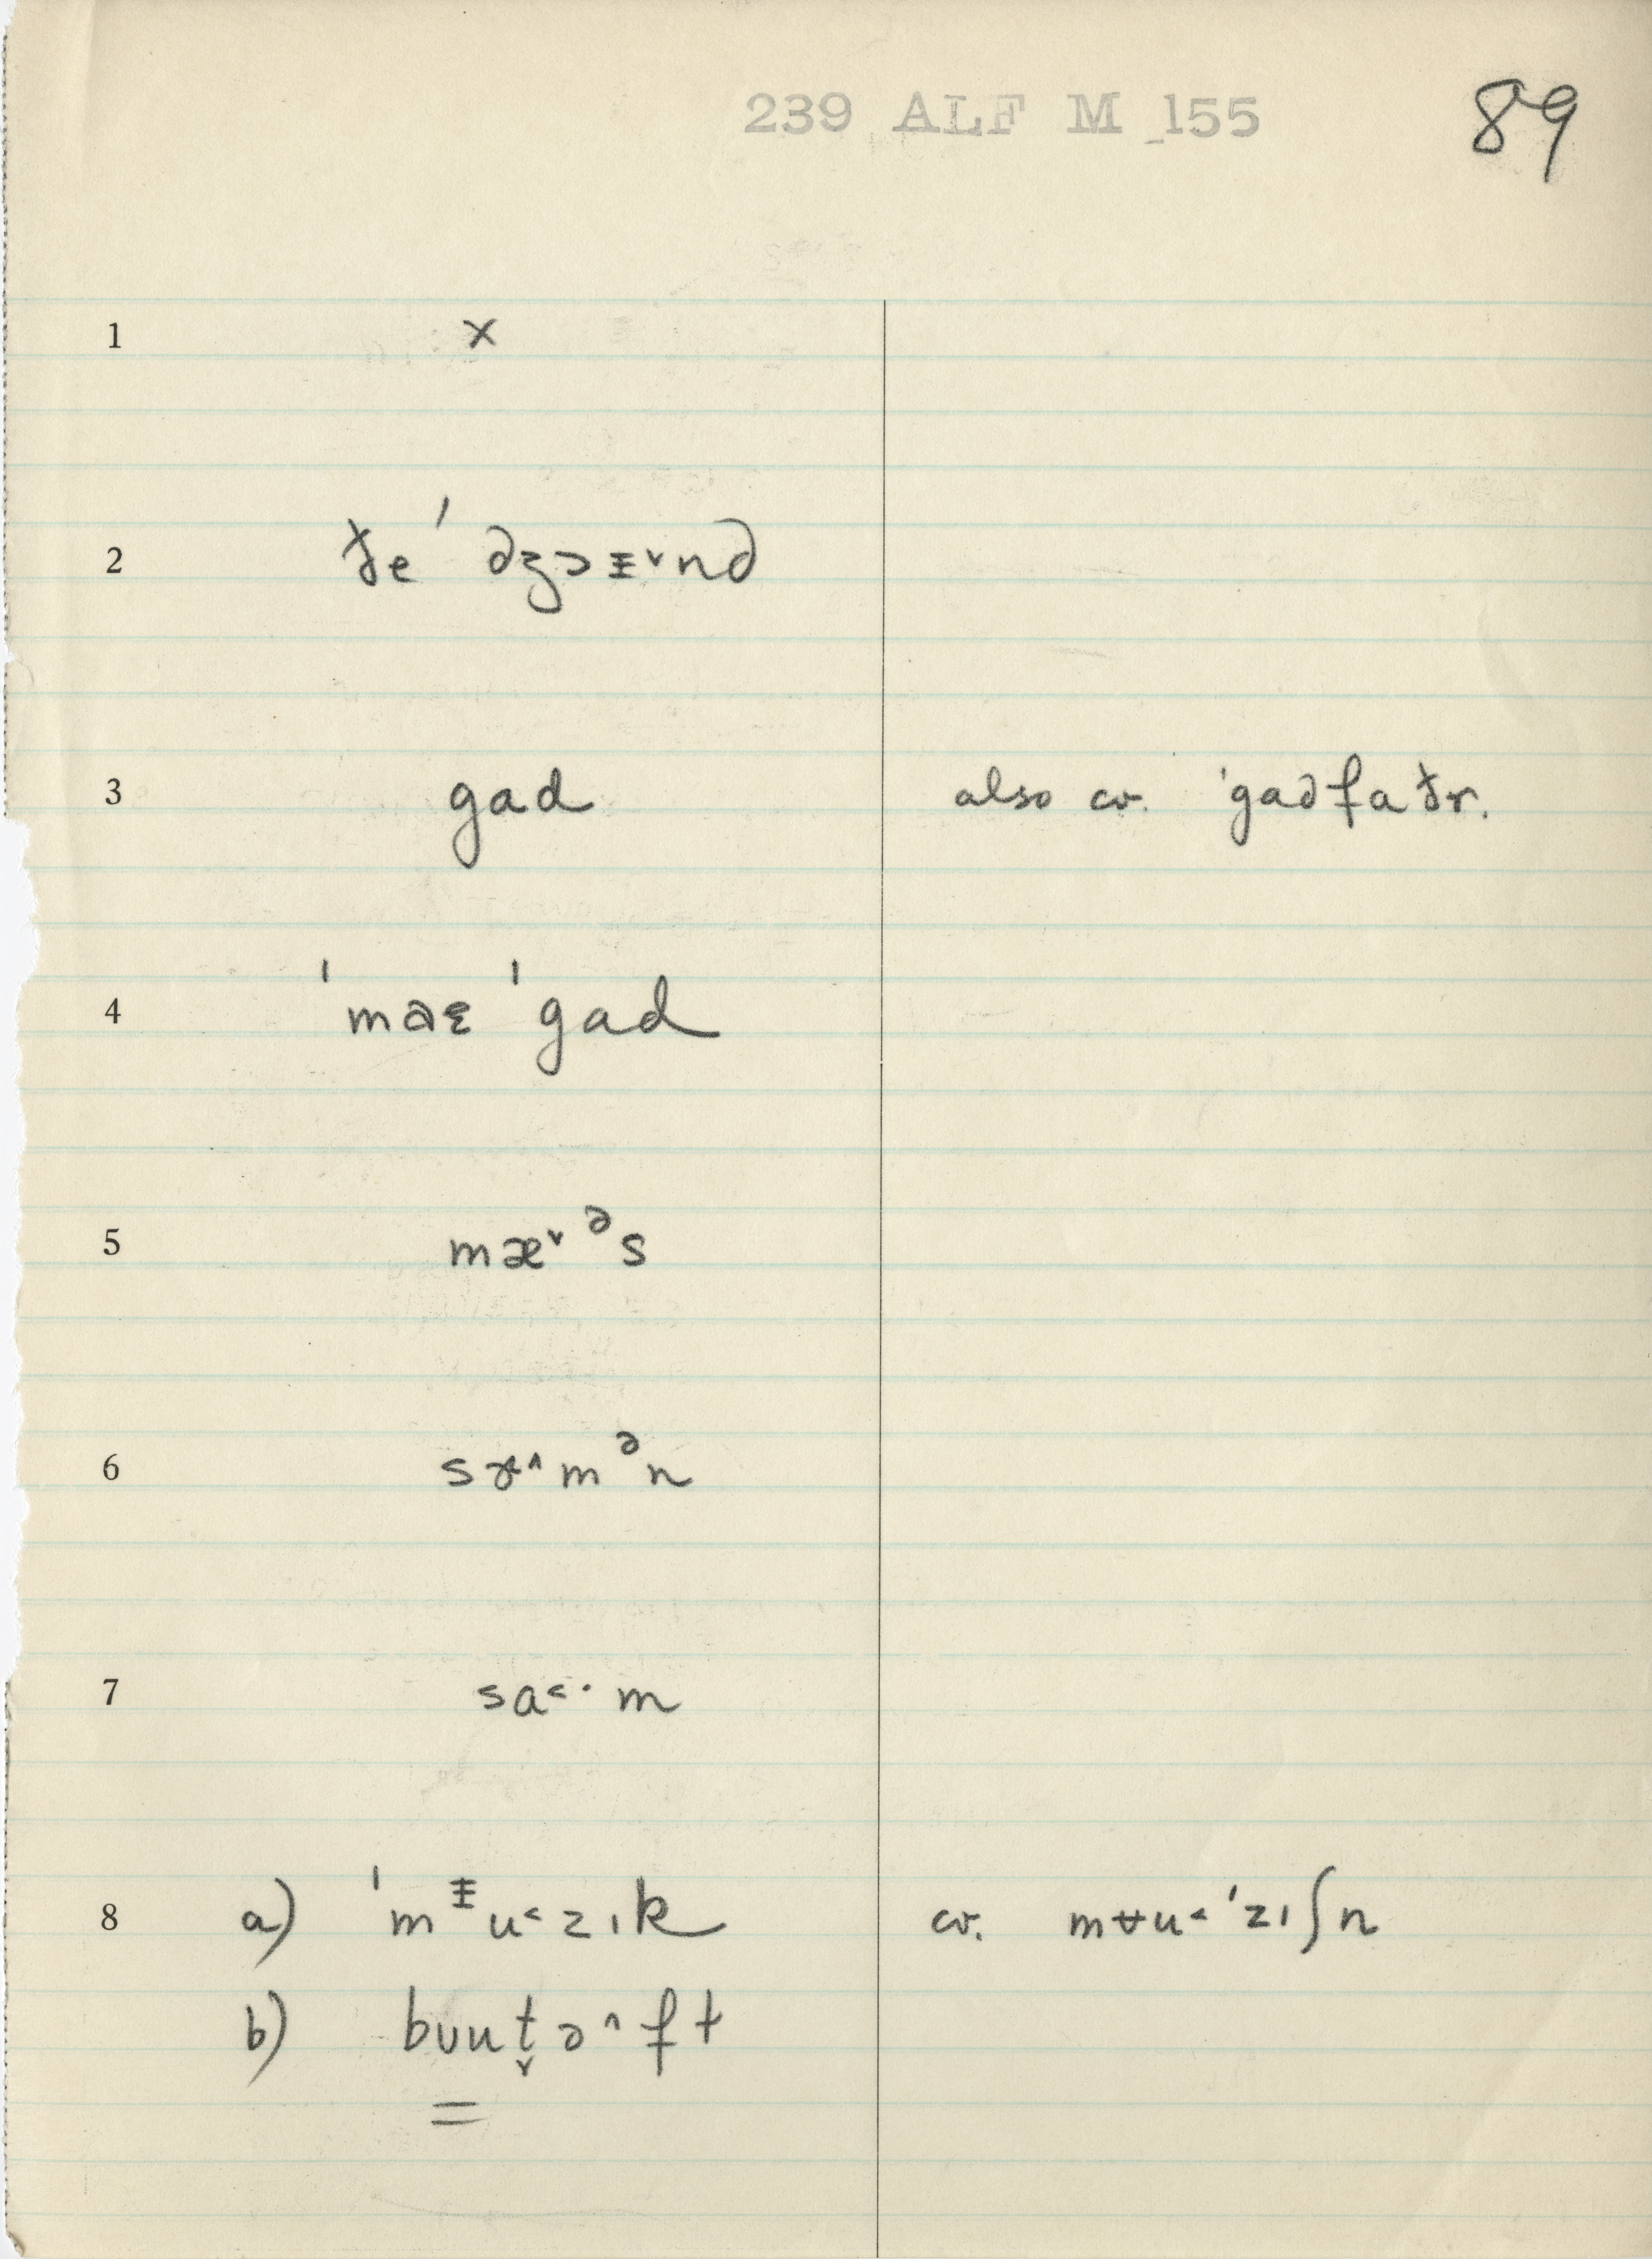 239 ALF M 155
89
1 x
2 ðe ˈdʒɔᵻ˅nd
3 gad also cv. ˈgadfaðr.
4 ˈmaɛ ˈgad
5 mæ˅ᵊs
6 sɚ˄mᵊn
7 sa˂· m
8 a) ˈmᵻu˂zɪk cv. mʉu˂ˈzɪʃn
b) bʊut̬ə˄ft